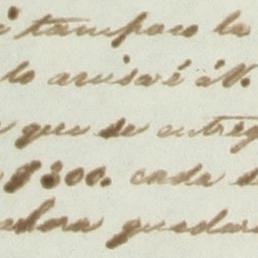 i tampoco la
lo avisaré á V.
que se entreg
$300. cada
adora quedar